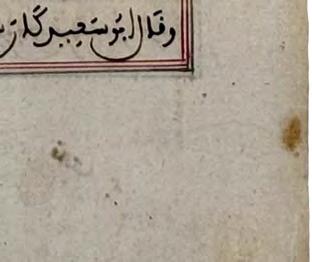 وقال ابو سعيد كان